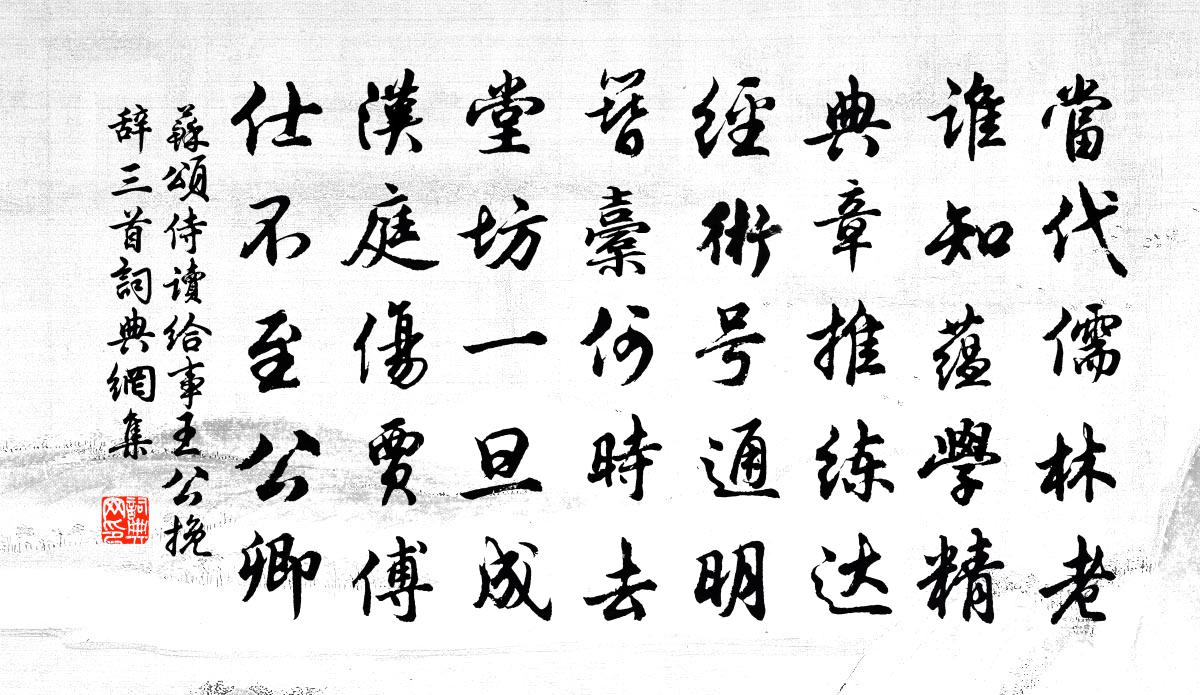 當代儒林老
誰知蕴學精
典章推练达
經術号通明
簪橐何時去
堂坊一旦成
漢庭傷賈傅
仕不至公卿
蘇頌侍讀給事王公挽
辞三首詞典網集
詞典
网印